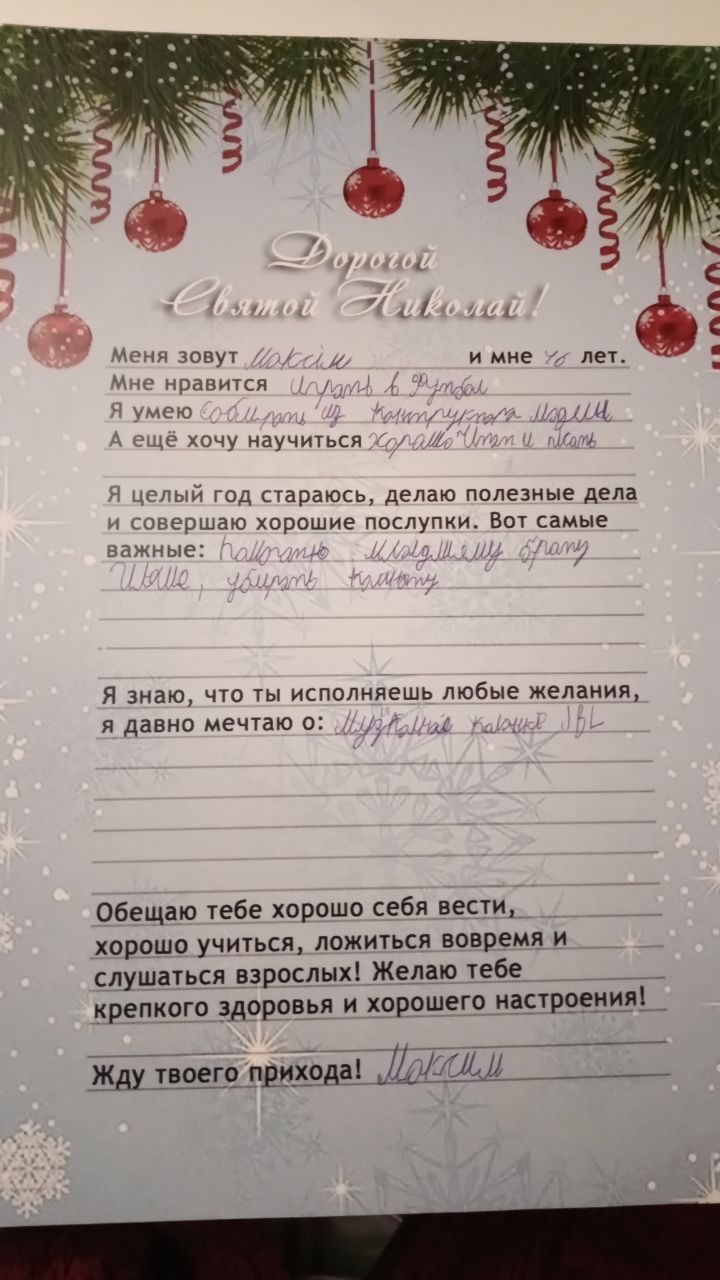 Дорогой
Святой Николай!
Меня зовут Максім и мне лет.
Мне нравится играть в футбол
Я умею Собирать из модели
А ещё хочу научиться хорошо и
Я целый год стараюсь, делаю полезные дела
и совершаю хорошие послупки. Вот самые
важные: брату
убирать
Я знаю, что ты исполняешь любые желания,
я давно мечтаю о: JBL
Обещаю тебе хорошо себя вести,
хорошо учиться, ложиться вовремя и
слушаться взрослых! Желаю тебе
крепкого здоровья и хорошего настроения!
Жду твоего прихода! Максим